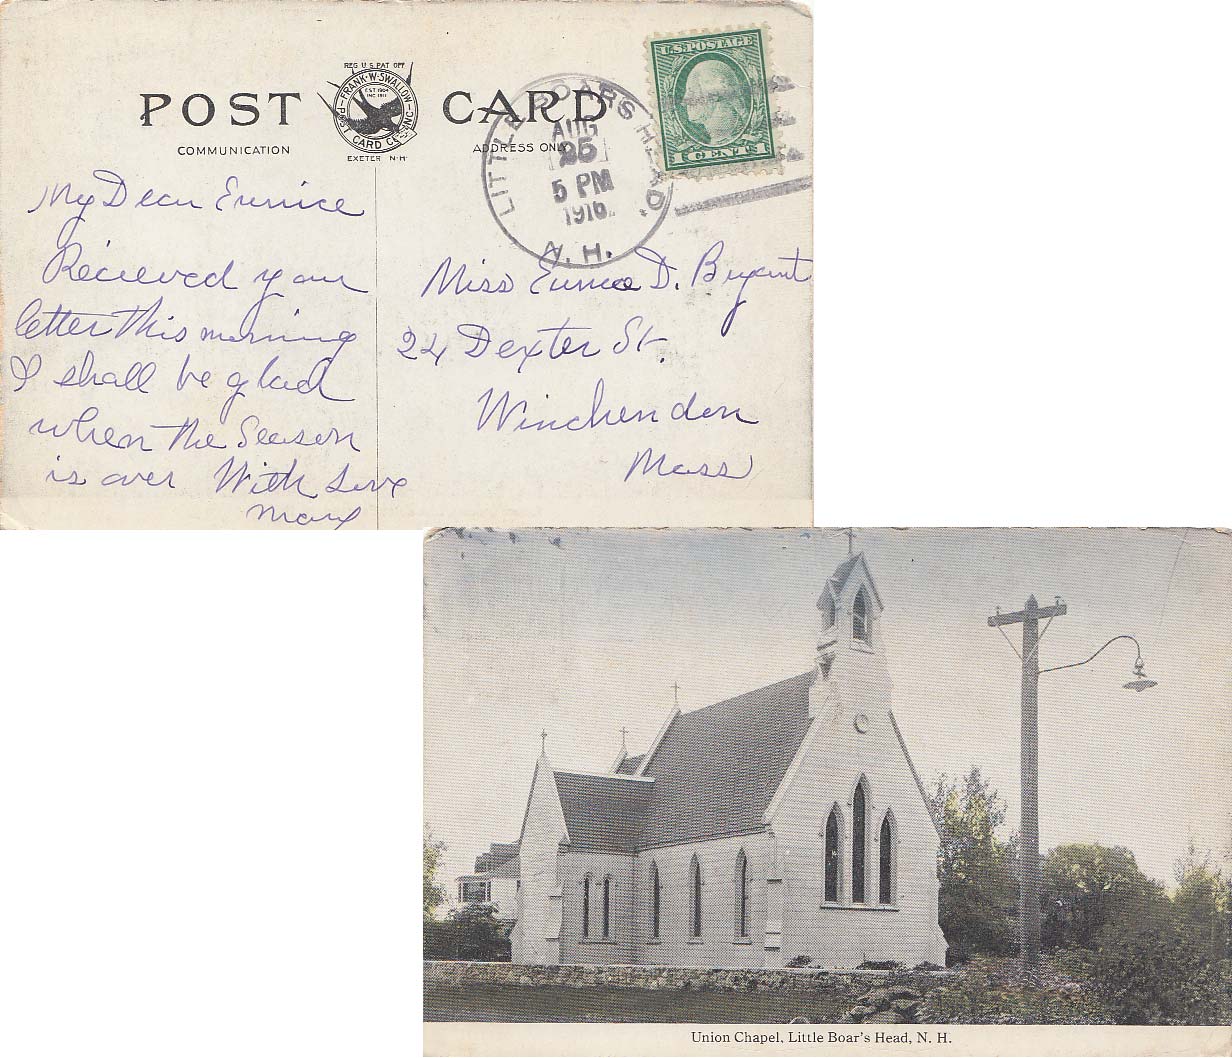 REG U S PAT OFF
FRANK·W·SWALLOW
EST 1904
INC 1911
POST CARD CO INC
POST CARD
EXETER N·H·
COMMUNICATION
ADDRESS ONLY
LITTLE BOARS HEAD.
AUG
25
5 PM
1916
N. H.
U.S. POSTAGE
1 CENT 1
My Dear Eunice
Recieved your
letter this morning
I shall be glad
when the Season
is over With Love
Mary
Miss Eunice D. Bryant
24 Dexter St.
Winchendon
Mass
Union Chapel, Little Boar's Head, N. H.